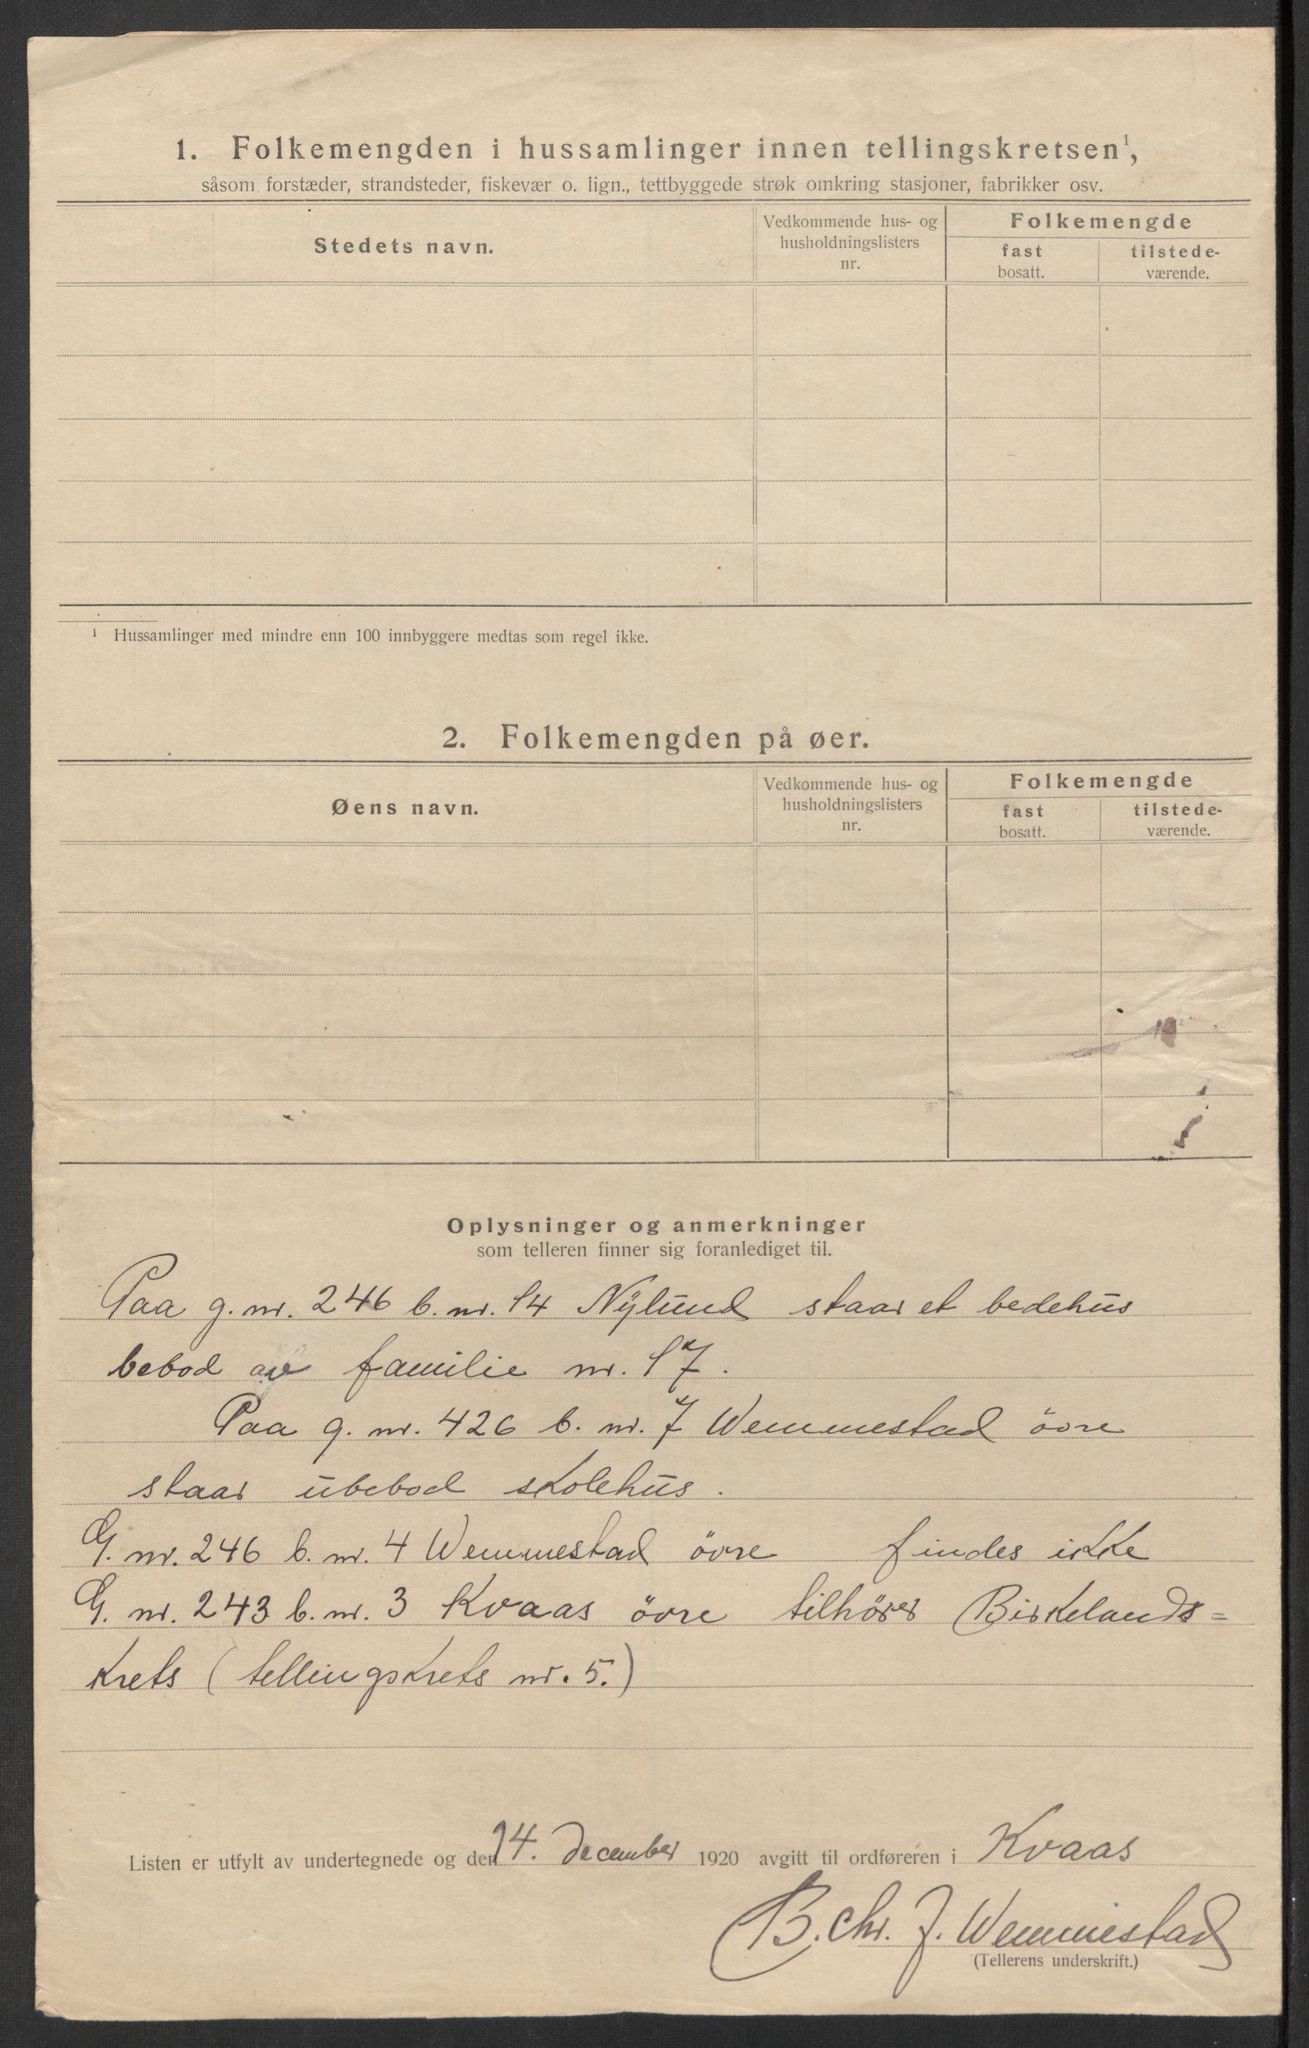 1. Folkemengden i hussamlinger innen tellingskretsen¹,
såsom forstæder, strandsteder, fiskevær o. lign., tettbyggede strøk omkring stasjoner, fabrikker osv.
Stedets navn.
Vedkommende hus- og
husholdningslisters
nr.
Folkemengde
fast
bosatt.
tilstede-
værende.
¹ Hussamlinger med mindre enn 100 innbyggere medtas som regel ikke.
2. Folkemengden på øer.
Øens navn.
Vedkommende hus- og
husholdningslisters
nr.
Folkemengde
fast
bosatt.
tilstede-
værende.
Oplysninger og anmerkninger
som telleren finner sig foranlediget til.
Paa g. nr. 246 b. nr. 14 Nylund staar et bedehus
bebod av familie nr. 17.
Paa g. nr. 426 b. nr. 7 Wemmestad övre
staar ubebod skolehus.
G. nr. 246 b. nr. 4 Wemmestad övre findes ikke
G. nr. 243 b. nr. 3 Kvaas övre tilhörer Birkelands=
krets (tellingskrets nr. 5.)
Listen er utfylt av undertegnede og den 14. December 1920 avgitt til ordføreren i Kvaas
B. Chr. J. Wemmestad
(Tellerens underskrift.)